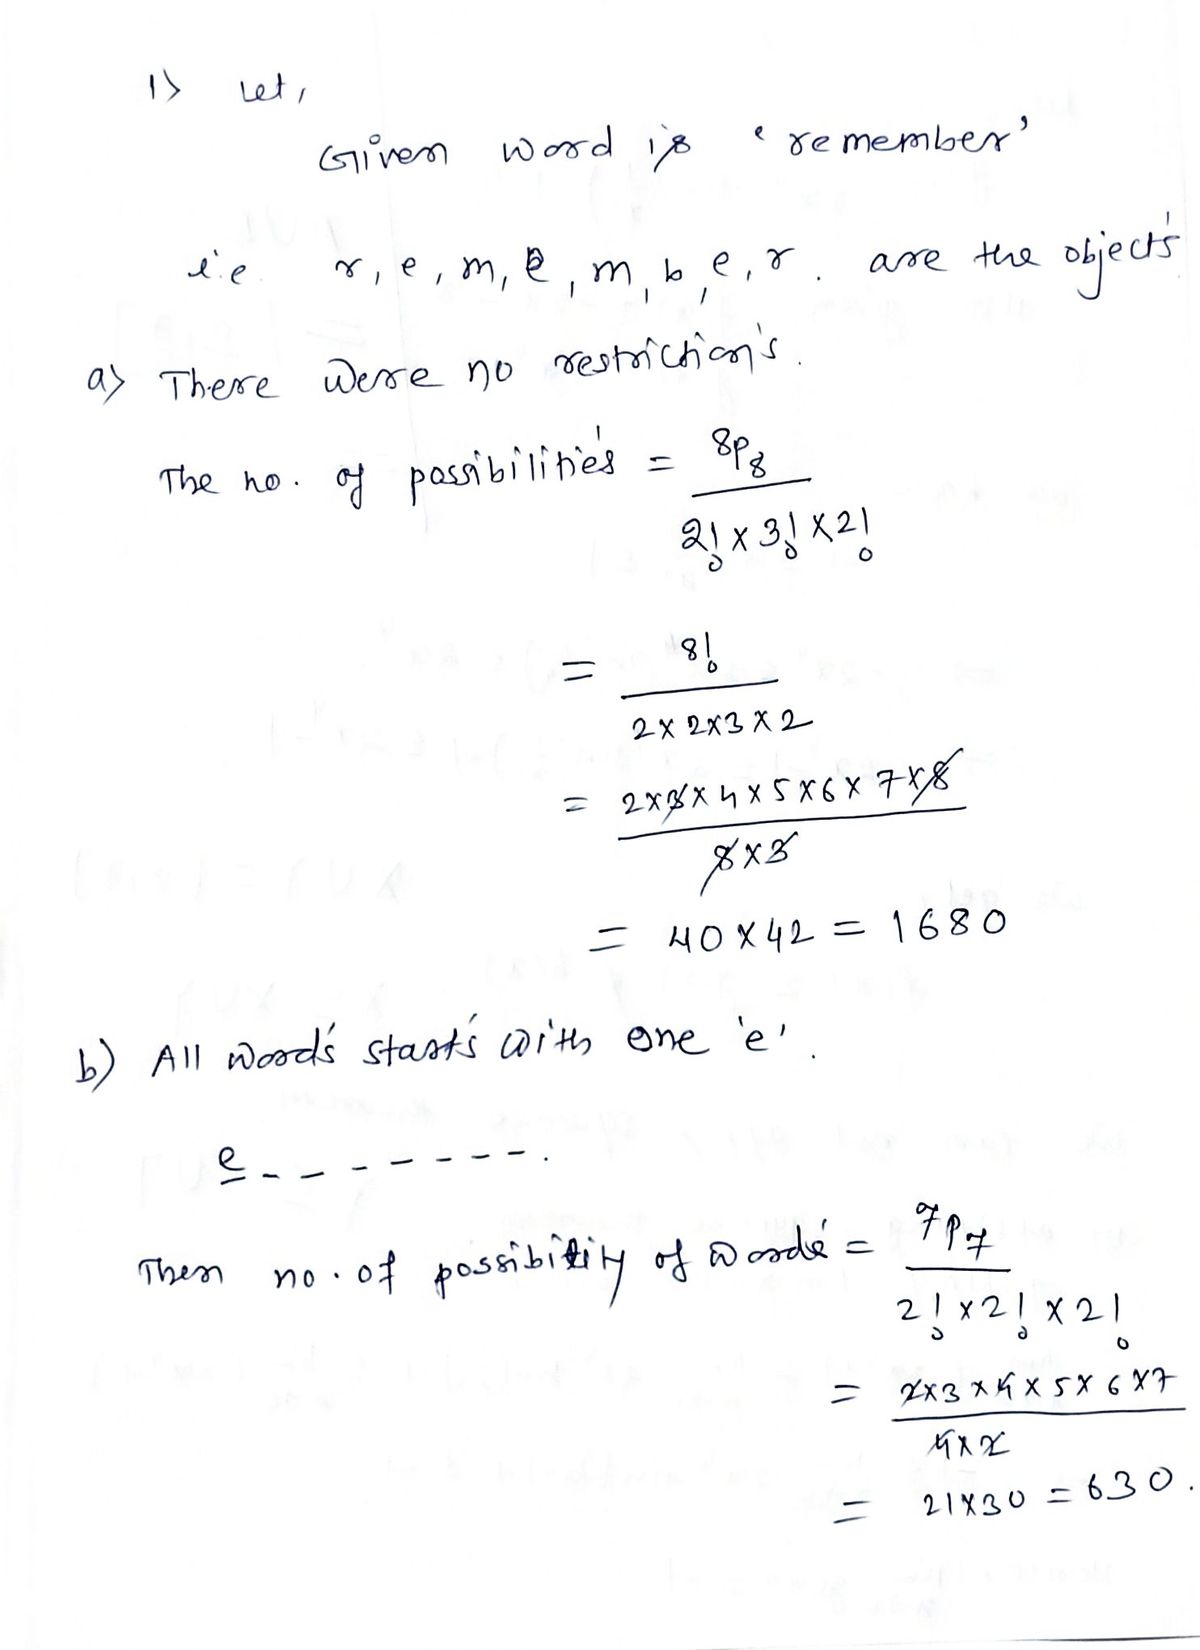 1) Let,
Given word is 'remember'
i.e. r, e, m, e, m, b, e, r. are the object's
a) There were no restriction's.
The no. of possibilitie's = 8P8 / 2! x 3! x 2!
= 8! / 2 x 2 x 3 x 2
= 2 x 3 x 4 x 5 x 6 x 7 x 8 / 8 x 3
= 40 x 42 = 1680
b) All word's start's with one 'e'.
e - - - - - - - -.
Then no. of possibility of words' = 7P7 / 2! x 2! x 2!
= 2 x 3 x 4 x 5 x 6 x 7 / 4 x 2
= 21 x 30 = 630.